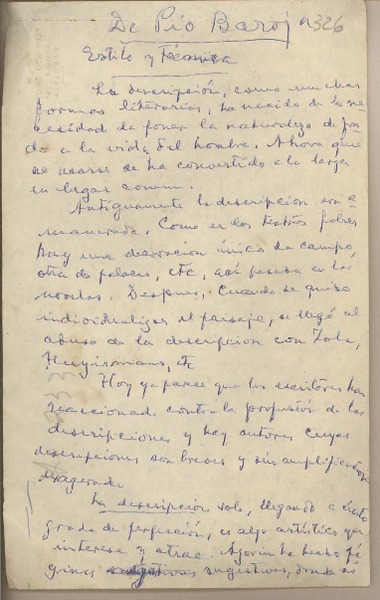 De Pío Baroj
n 326
Estilo y técnica
La descripción, como muchas
formas literarias, ha nacido de la ne
cesidad de poner la naturaleza de fon
do a la vida del hombre. Ahora que
se ha convertido a la larga
en lugar común.
Antiguamente la descripción era a
manerada. Como en los teatros pobres
hay una decoración única de campo,
otra de palacio, etc, así pasaba en las
novelas. Después, cuando se quiso
individualizar el paisaje, se llegó al
abuso de la descripción con Zola,
Huysmans, etc
Hoy ya parece que los escritores han
reaccionado contra la profusión de las
descripciones y hay autores cuyas
descripciones son breves y sin amplificación
exagerada
La descripción sola, llegando a cierto
grado de perfección, es algo artístico que
interesa y atrae. Azorín ha hecho pá
ginas sugestivas, donde